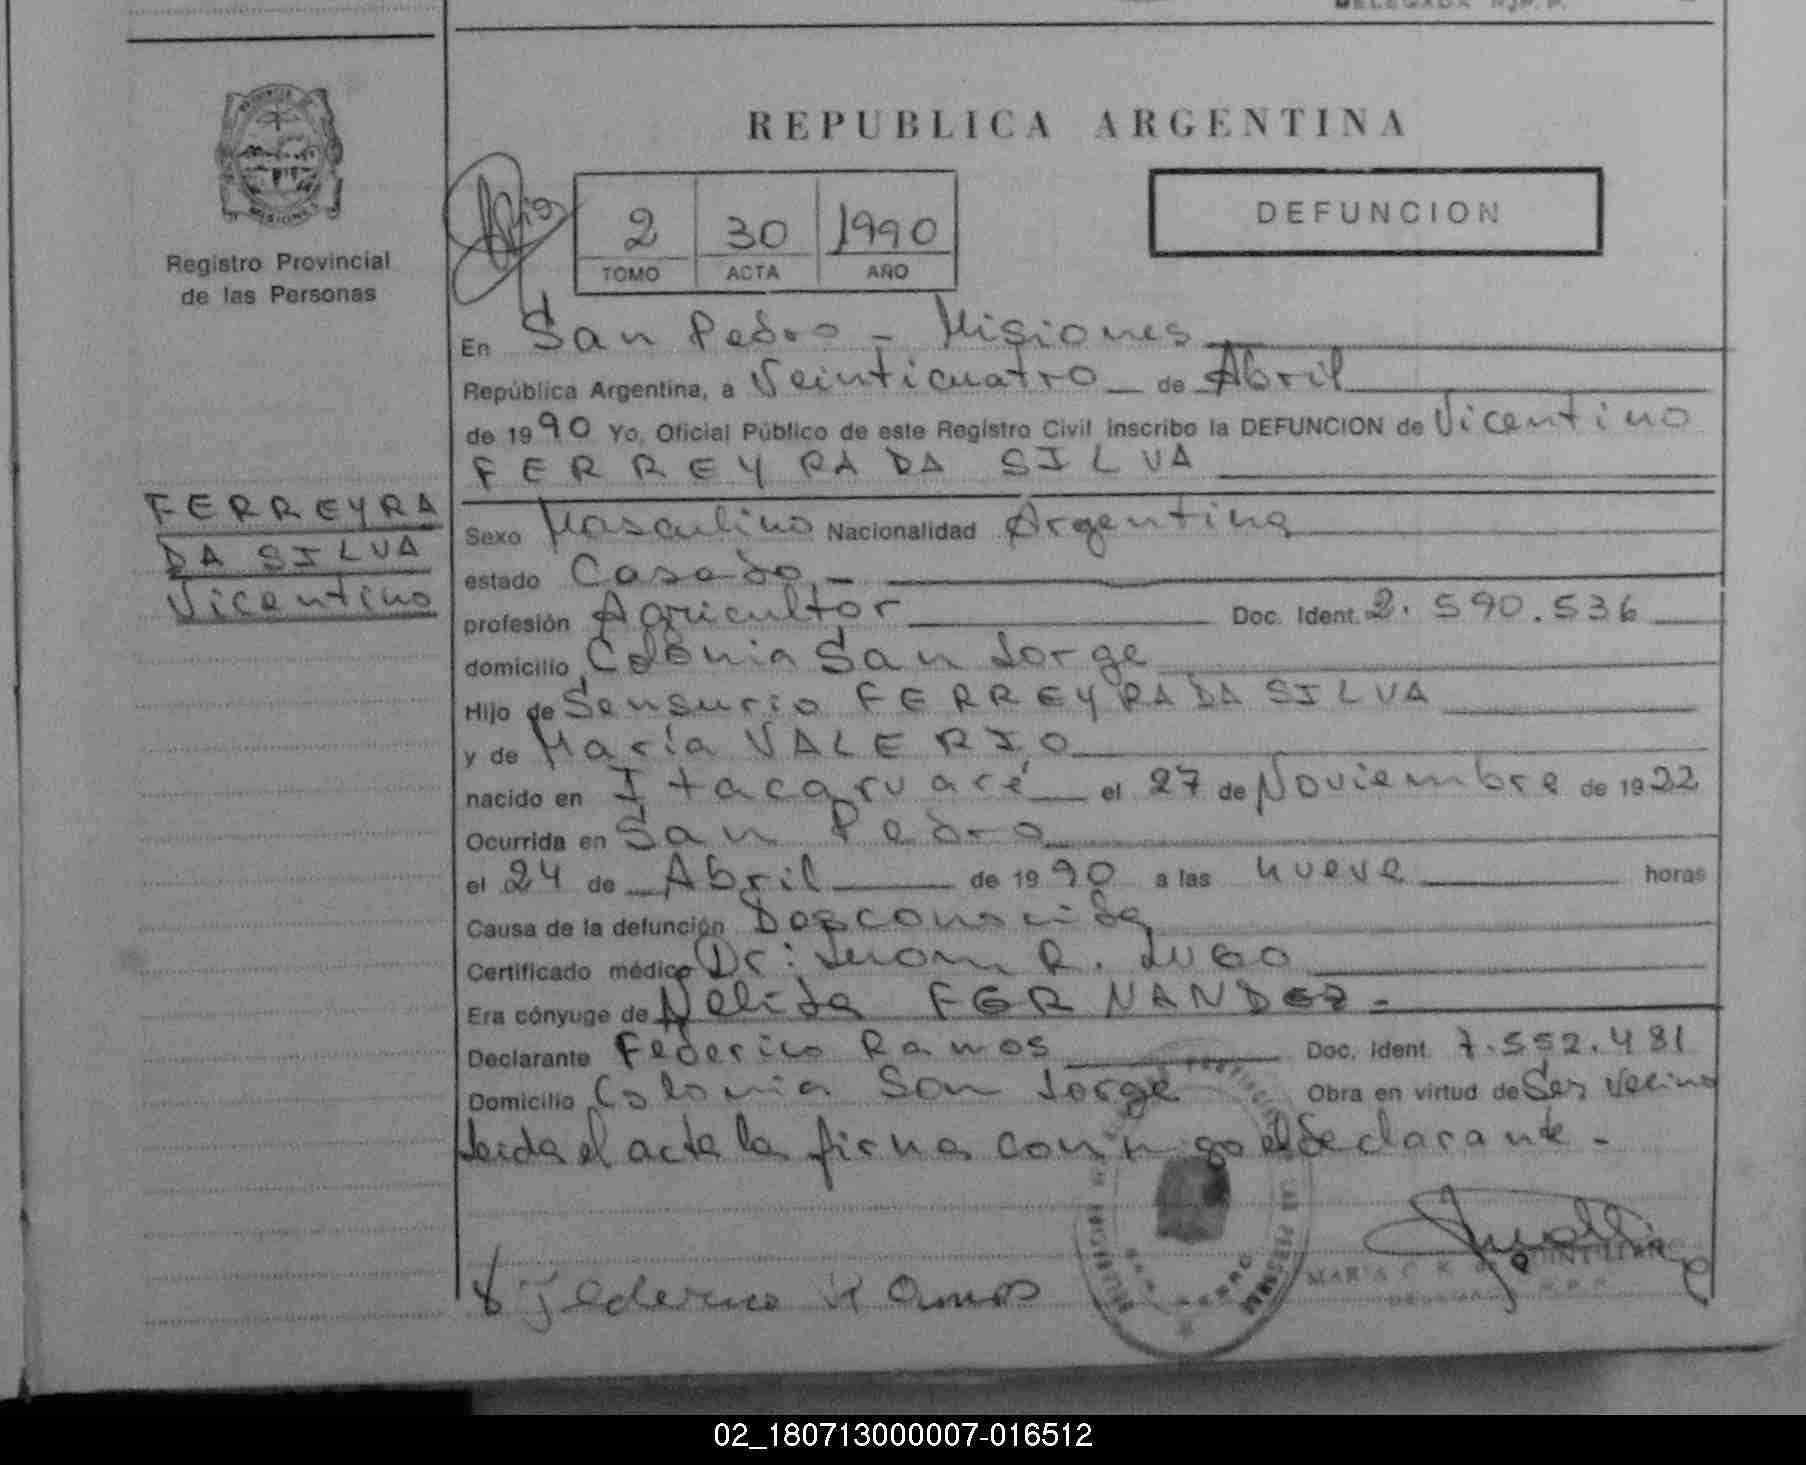 REPUBLICA ARGENTINA
Registro Provincial
de las Personas
2 30 1990
TOMO ACTA AÑO
DEFUNCION
En San Pedro - Misiones
República Argentina, a Veinticuatro de Abril
de 1990 Yo, Oficial Público de este Registro Civil inscribo la DEFUNCION de Vicentino
FERREYRA DA SILVA
FERREYRA
DA SILVA
Vicentino
Sexo Masculino Nacionalidad Argentina
estado Casado -
profesión Agricultor Doc. Ident. 2.590.536
domicilio Colonia San Jorge
Hijo de Sensurio FERREYRA DA SILVA
y de María VALERIO
nacido en Itacaruaré el 27 de Noviembre de 1922
Ocurrida en San Pedro
el 24 de Abril de 1990 a las nueve horas
Causa de la defunción Desconocida
Certificado médico Dr: R. LUGO
Era cónyuge de Nelida FERNANDEZ -
Declarante Federico Ramos Doc. Ident. 7.552.481
Domicilio Colonia San Jorge Obra en virtud de Ser Vecino
Leida el acta la firma conmigo el declarante -
Federico Ramos
MARIA C. K.
02_180713000007-016512